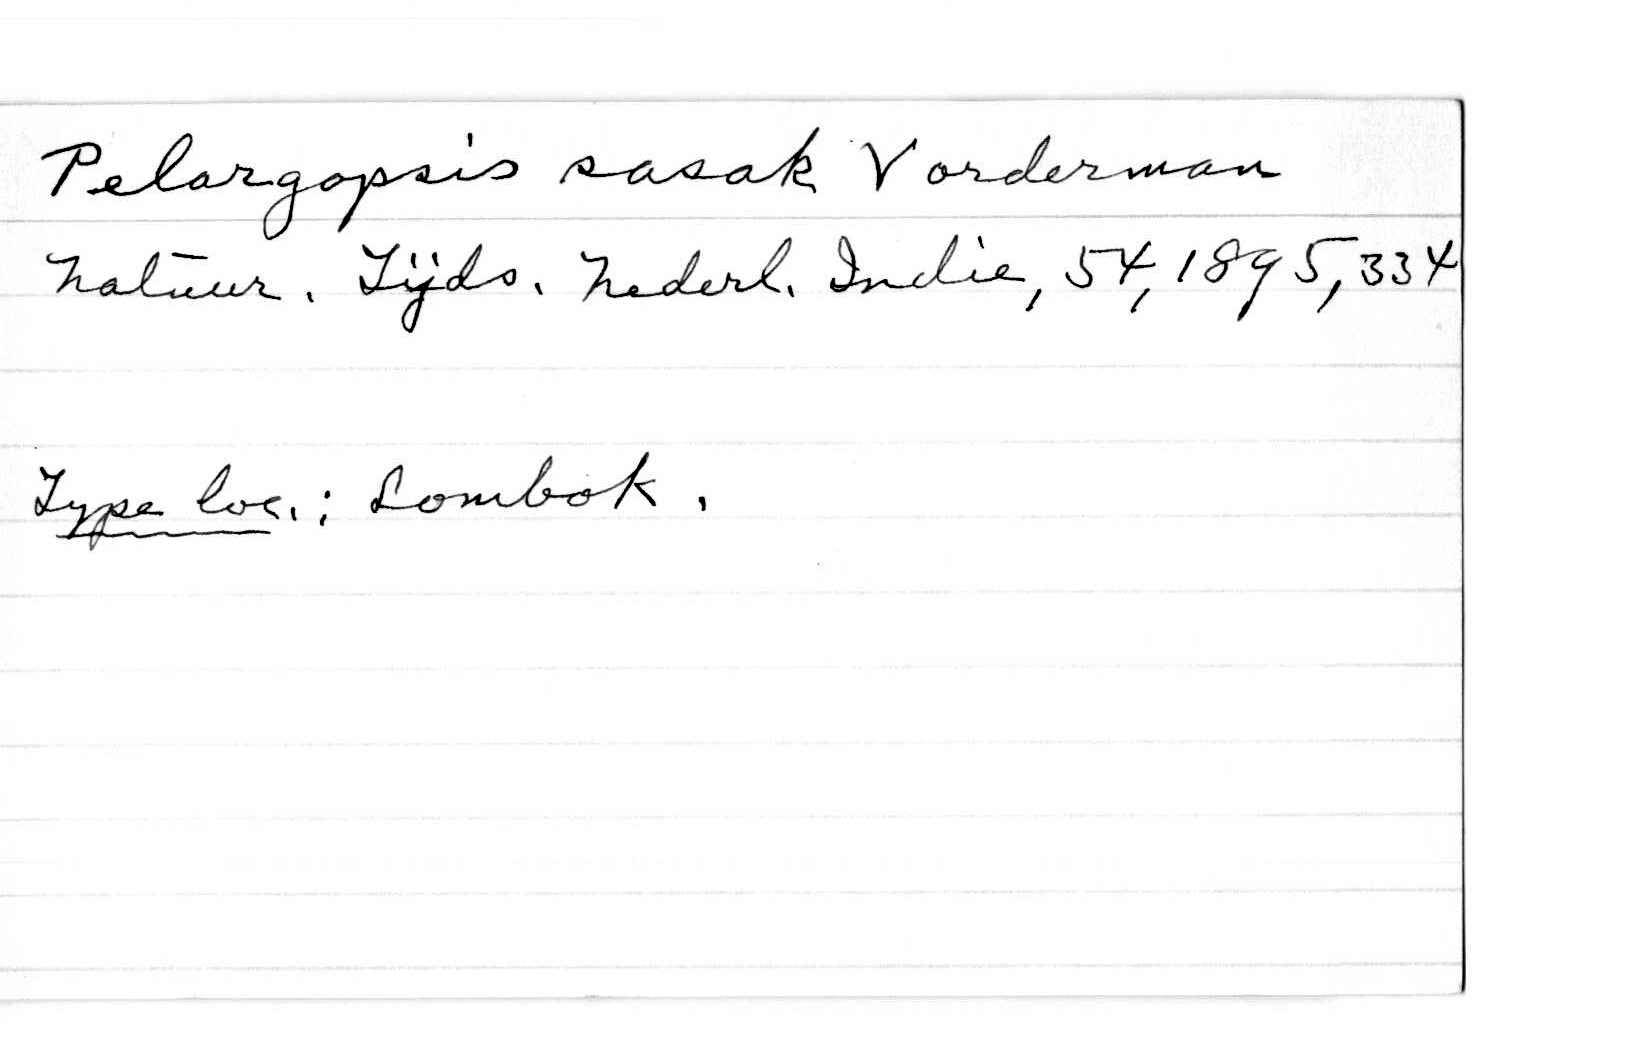 Pelargopsis sasak Vorderman
Natuur. Tijds. Nederl. Indie, 54, 1895, 334
Type loc.: Lombok.